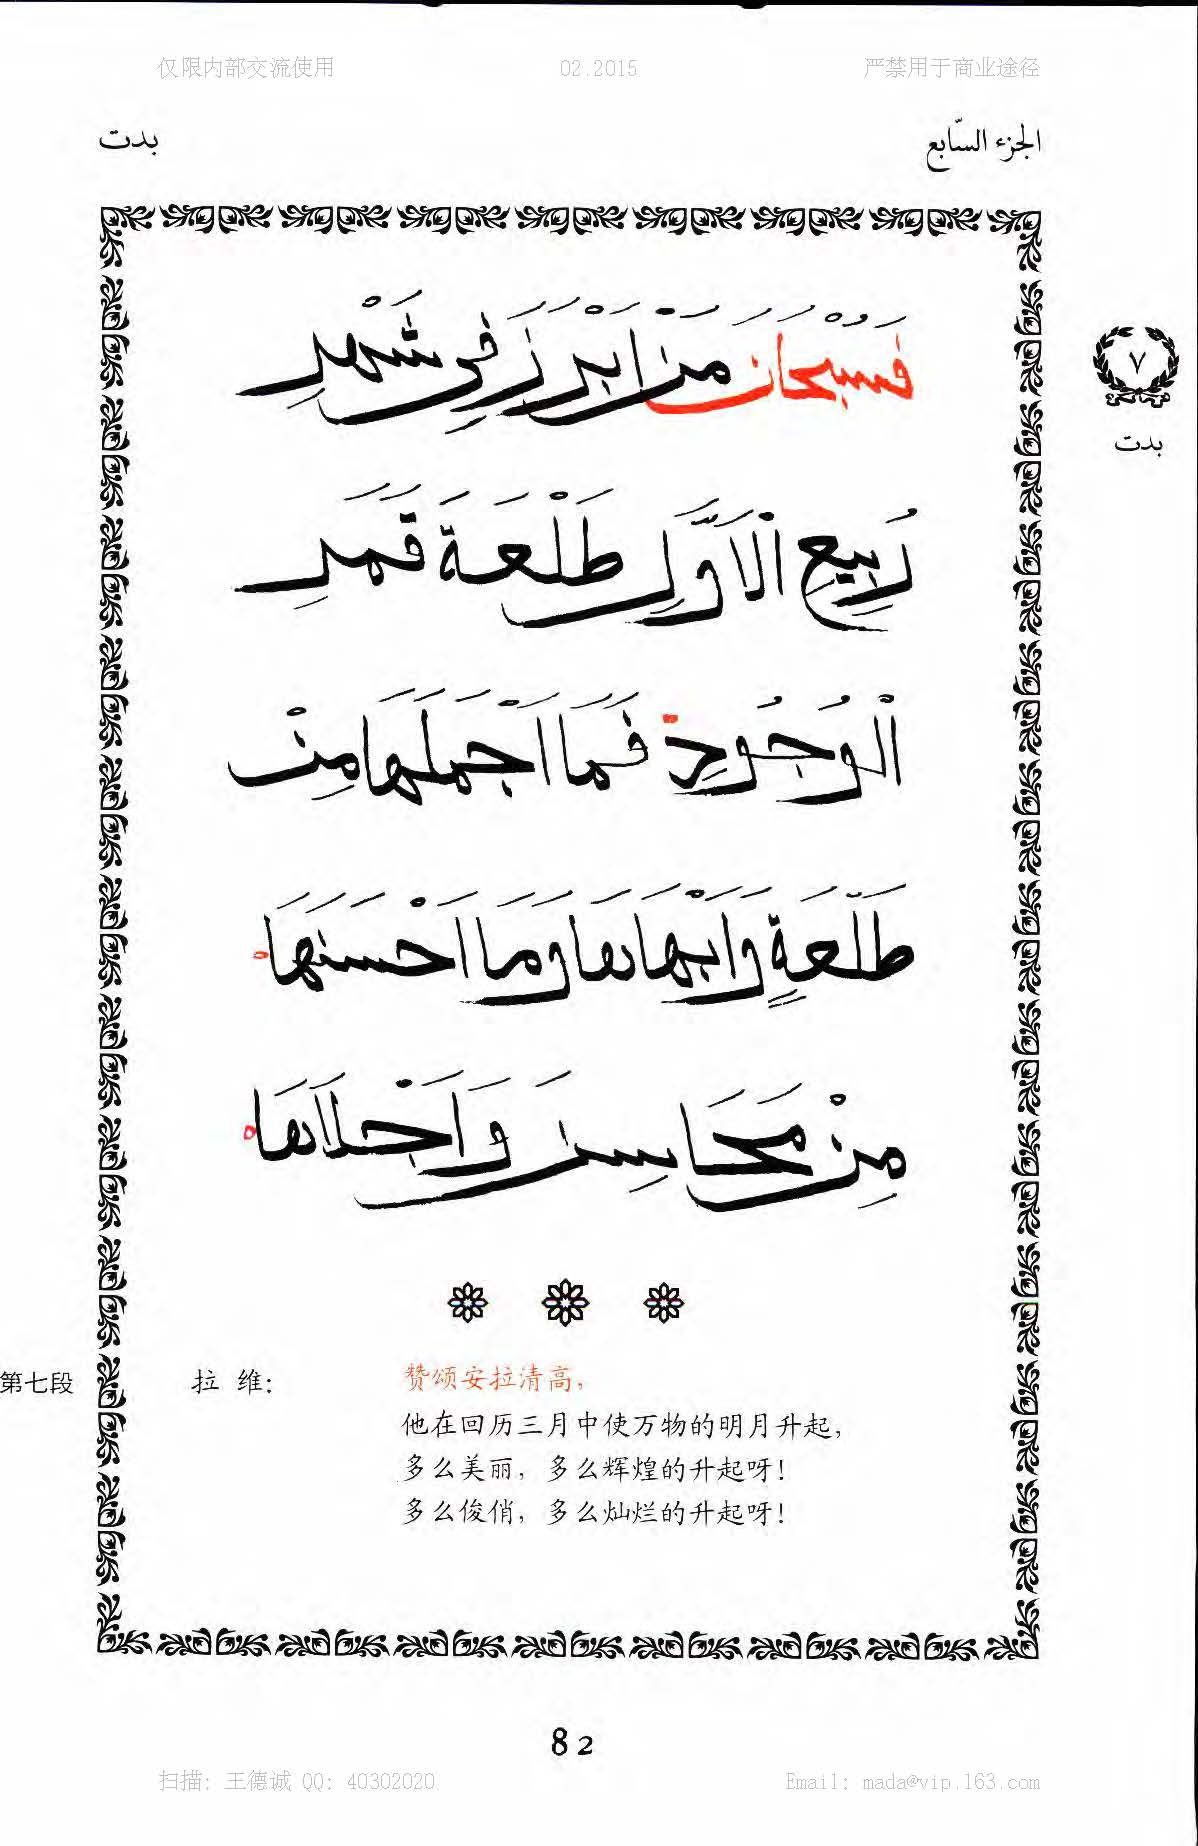 仅限内部交流使用 02.2015 严禁用于商业途径
الجزء السّابع بدت
فَسُبْحَانَ مَنْ اَبْرَزَ فِي شَهْرِ
٧
بدت
رَبِيعِ الْاَوَّلِ طَلْعَةَ قَمَرِ
الْوُجُودِ فَمَا اَجْمَلَهَا مِنْ
طَلْعَةٍ وَاَبْهَاهَا وَمَا اَحْسَنَهَا
مِنْ مَحَاسِنَ وَاَحْلَاهَا
第七段 拉 维： 赞颂安拉清高，
他在回历三月中使万物的明月升起，
多么美丽，多么辉煌的升起呀！
多么俊俏，多么灿烂的升起呀！
82
扫描：王德诚 QQ：40302020 Email：mada@vip.163.com